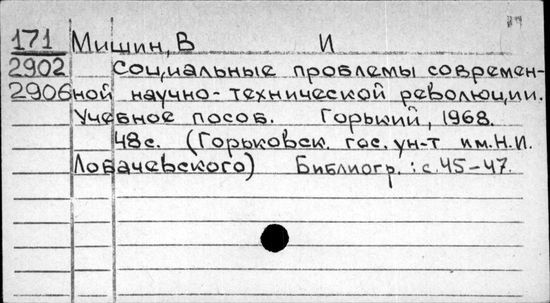 171 Мишин, В И
2902 Социальные проблемы современ-
2906 ной научно-технической революции.
Учебное пособ. Горький, 1968.
48с. (Горьковск. гос. ун-т им. Н.И.
Лобачевского) Библиогр.: с. 45-47.